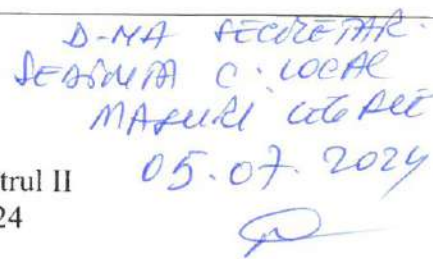 D-NA SECRETAR.
SEDINTA C. LOCAL
MASURI LEGALE
05.07.2024
trul II
24